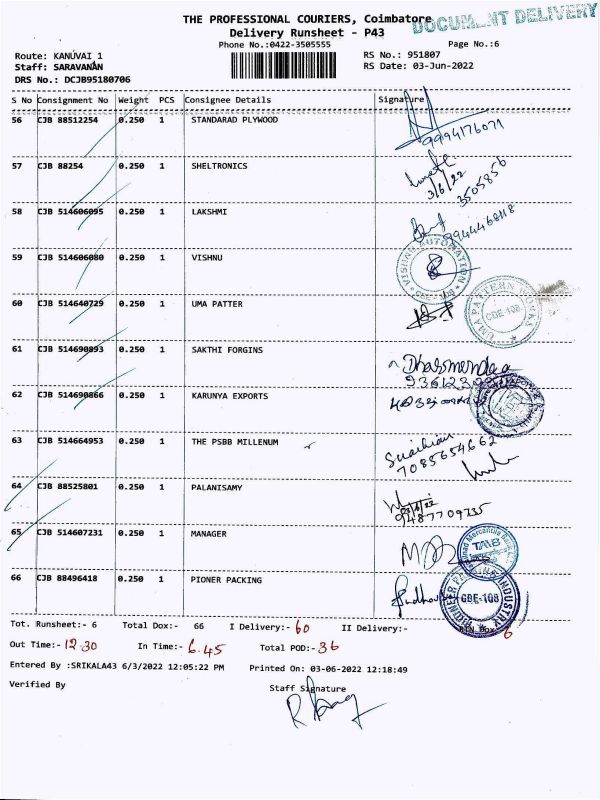 THE PROFESSIONAL COURIERS, Coimbatore
DOCUM_NT DELIVERY
Delivery Runsheet - P43
Phone No.:0422-3505555
Page No.:6
Route: KANUVAI 1
RS No.: 951807
Staff: SARAVANAN
RS Date: 03-Jun-2022
DRS No.: DCJB95180706
S No Consignment No Weight PCS Consignee Details Signature
56 CJB 88512254 0.250 1 STANDARAD PLYWOOD
9994176071
57 CJB 88254 0.250 1 SHELTRONICS
3/6/22
3505856
58 CJB 514606095 0.250 1 LAKSHMI
9944468118
59 CJB 514606080 0.250 1 VISHNU
VISHNU AUTOMATION
CBE-108
60 CJB 514640729 0.250 1 UMA PATTER
UMA PATTERN WORKS
CDE-108
61 CJB 514690893 0.250 1 SAKTHI FORGINS
Dharmendra
62 CJB 514690866 0.250 1 KARUNYA EXPORTS
63 CJB 514664953 0.250 1 THE PSBB MILLENUM
7085654662
64 CJB 88525801 0.250 1 PALANISAMY
3/6/22
9487709735
65 CJB 514607231 0.250 1 MANAGER
Mercantile Bank
TMB
66 CJB 88496418 0.250 1 PIONER PACKING
PIONEER PACKING INDUSTRY
CDE-108
Tot. Runsheet:- 6 Total Dox:- 66 I Delivery:- 60 II Delivery:- 6
Out Time:- 12.30 In Time:- 6.45 Total POD:- 36
Entered By :SRIKALA43 6/3/2022 12:05:22 PM Printed On: 03-06-2022 12:18:49
Verified By
Staff Signature